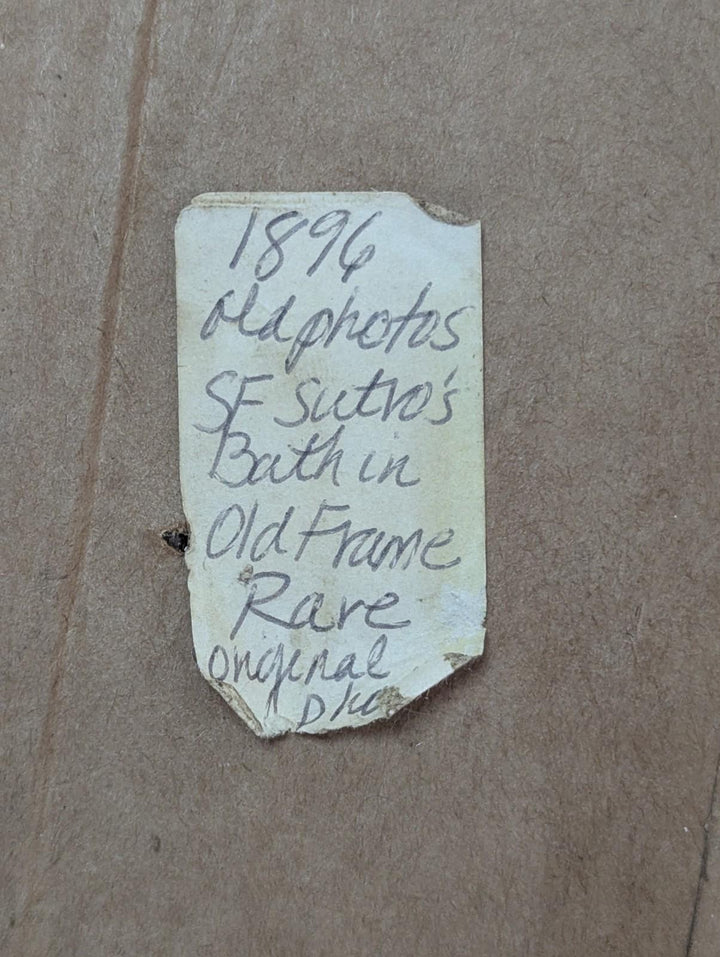 1896
old photos
SF Sutro's
Bath in
Old Frame
Rare
original